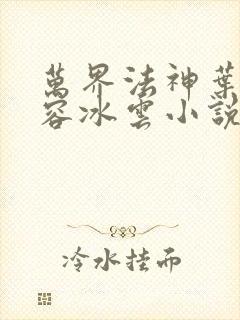 萬界法神葉
容冰雲小說
冷水挂而